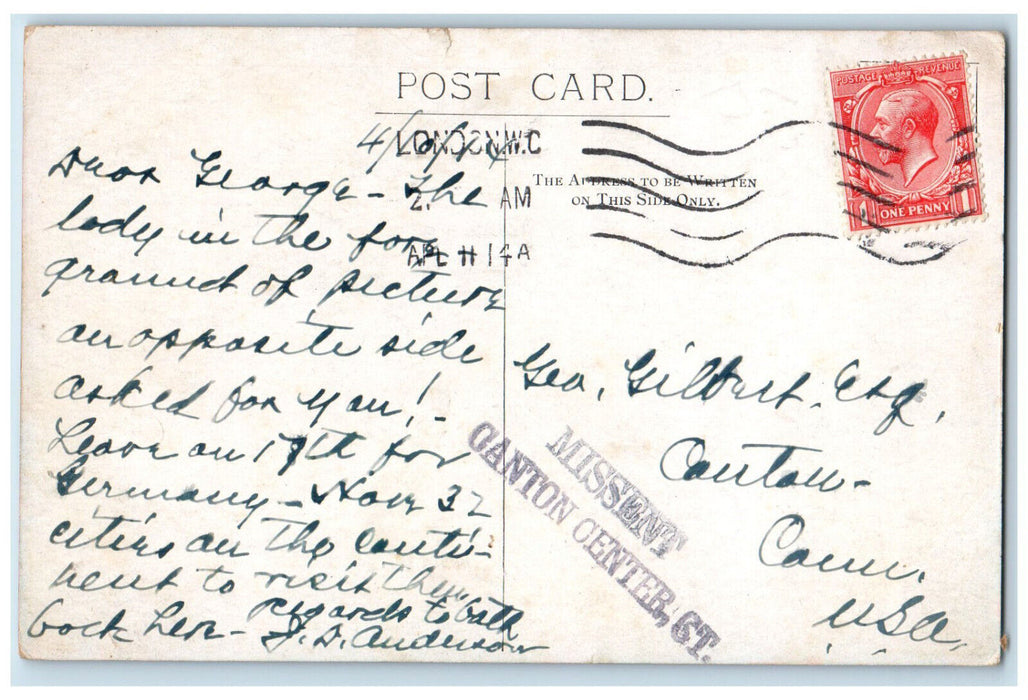 POST CARD.
LONDON. W.C
AM
APL 11 14 A
THE ADDRESS TO BE WRITTEN
ON THIS SIDE ONLY.
POSTAGE REVENUE
1 ONE PENNY 1
Dear George - The
lady in the fore
ground of picture
on opposite side
asked for you! -
Leave on 17th for
Germany - Have 32
cities on the conti-
nent to visit then
back here - Regards to both
J. D. Anderson
Geo. Gilbert. Esq.
Canton -
Conn.
USA.
MISSENT
CANTON CENTER, CT.